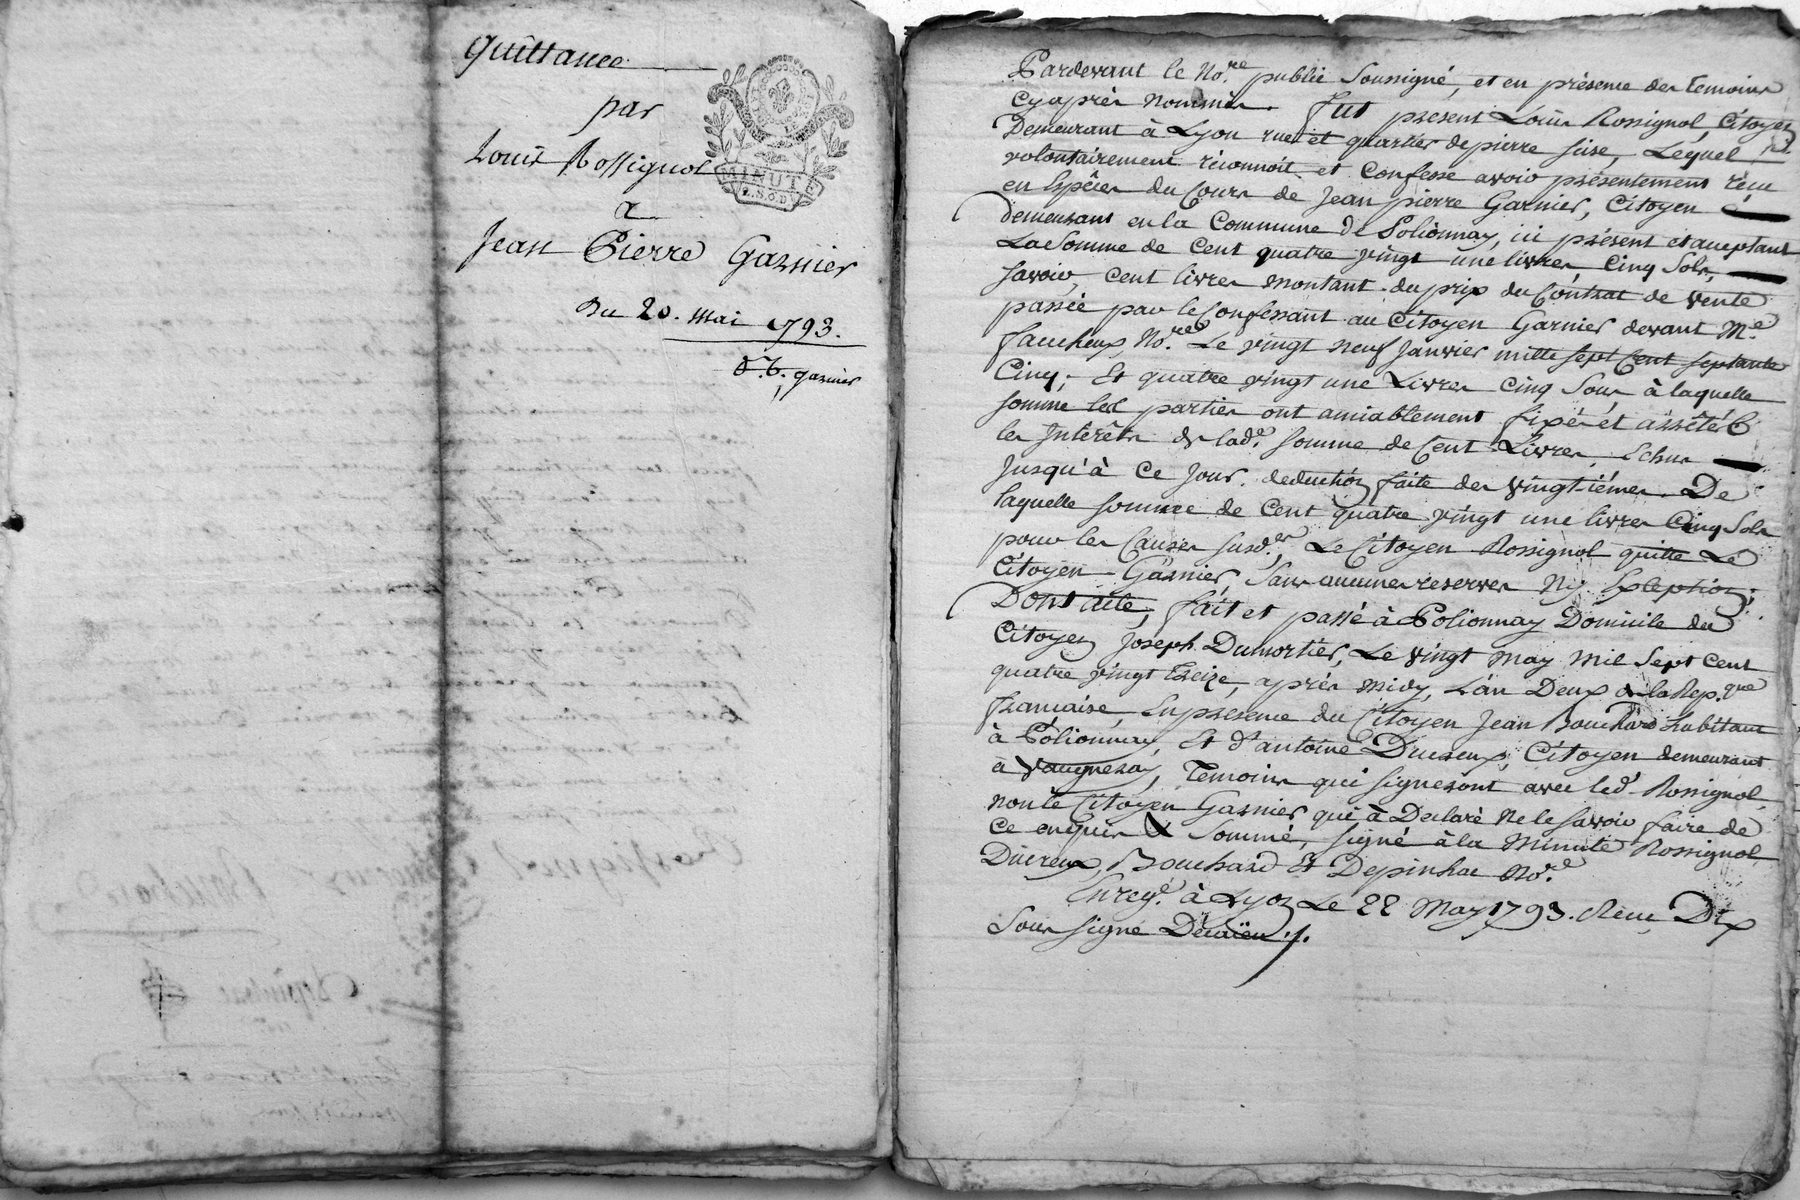 quittance
par
Louis Rossignol
a
Jean Pierre Garnier
Du 20. mai 1793.
garnier
MINUTE
Pardevant le No.re public Soussigné, et en présence des temoins
Cyaprès nommés. fut présent Loüis Rossignol, Citoyen
Demeurant à Lyon rue et quartier de pierre scise, Lequel
volontairement réconnoit et Confesse avoir présentement réçu
en Espêces du Cours de Jean pierre Garnier, Citoyen
demeurant en la Commune de Polionnay, ici présent et aceptant
La Somme de Cent quatre vingt une livres, Cinq Sols,
Savoir, Cent livres montant du prix du Contrat de vente
passée par le Confessant au Citoyen Garnier devant M.e
faucheux No.re Le vingt neuf Janvier mille sept Cent septante
Cinq; Et quatre vingt une Livres Cinq Sous, à laquelle
somme les parties ont amiablement fixés et arrêtés
les Intérêts de lad.e somme de Cent Livres, Echus
Jusqu'à Ce Jour. deduction faite des vingt-iémes. De
laquelle somme de Cent quatre vingt une livres Cinq Sols
pour les Causes susd.es, Le Citoyen Rossignol quitte Le
Citoyen Garnier, Sans aucunes reserves Ny Exception;
Dont acte, fait et passé à Polionnay Domicile du
Citoyen Joseph Dumortier, Le vingt may mil Sept Cent
quatre vingt treize, après midy, L'an Deux de la Rep.que
francaise, En présence du Citoyen Jean Bouchard habitant
à Polionnay, Et d'antoine Ducreux, Citoyen demeurant
à Vaugneray, Temoins qui signeront avec led. Rossignol
non le Citoyen Garnier qui à Declaré Ne le savoir faire de
Ce enquis & Sommé, signé à la Minute Rossignol
Ducreux, Bouchard Et Depinhac No.re
Enreg.é à Lyon Le 22 May 1793. Reçu Dix
Sous signé